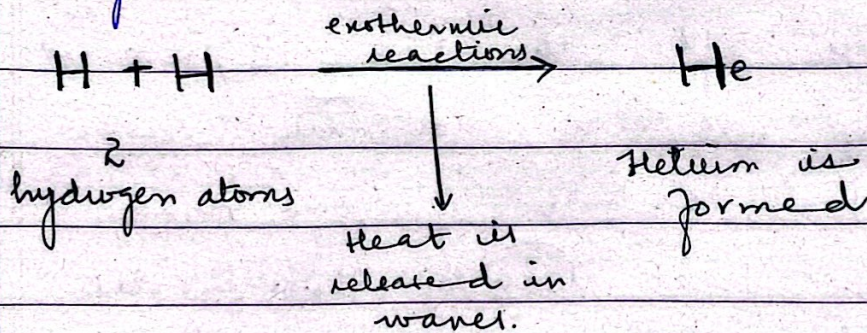 exothermic
reactions
H + H → He
2
hydrogen atoms
Helium is
formed
Heat is
released in
waves.